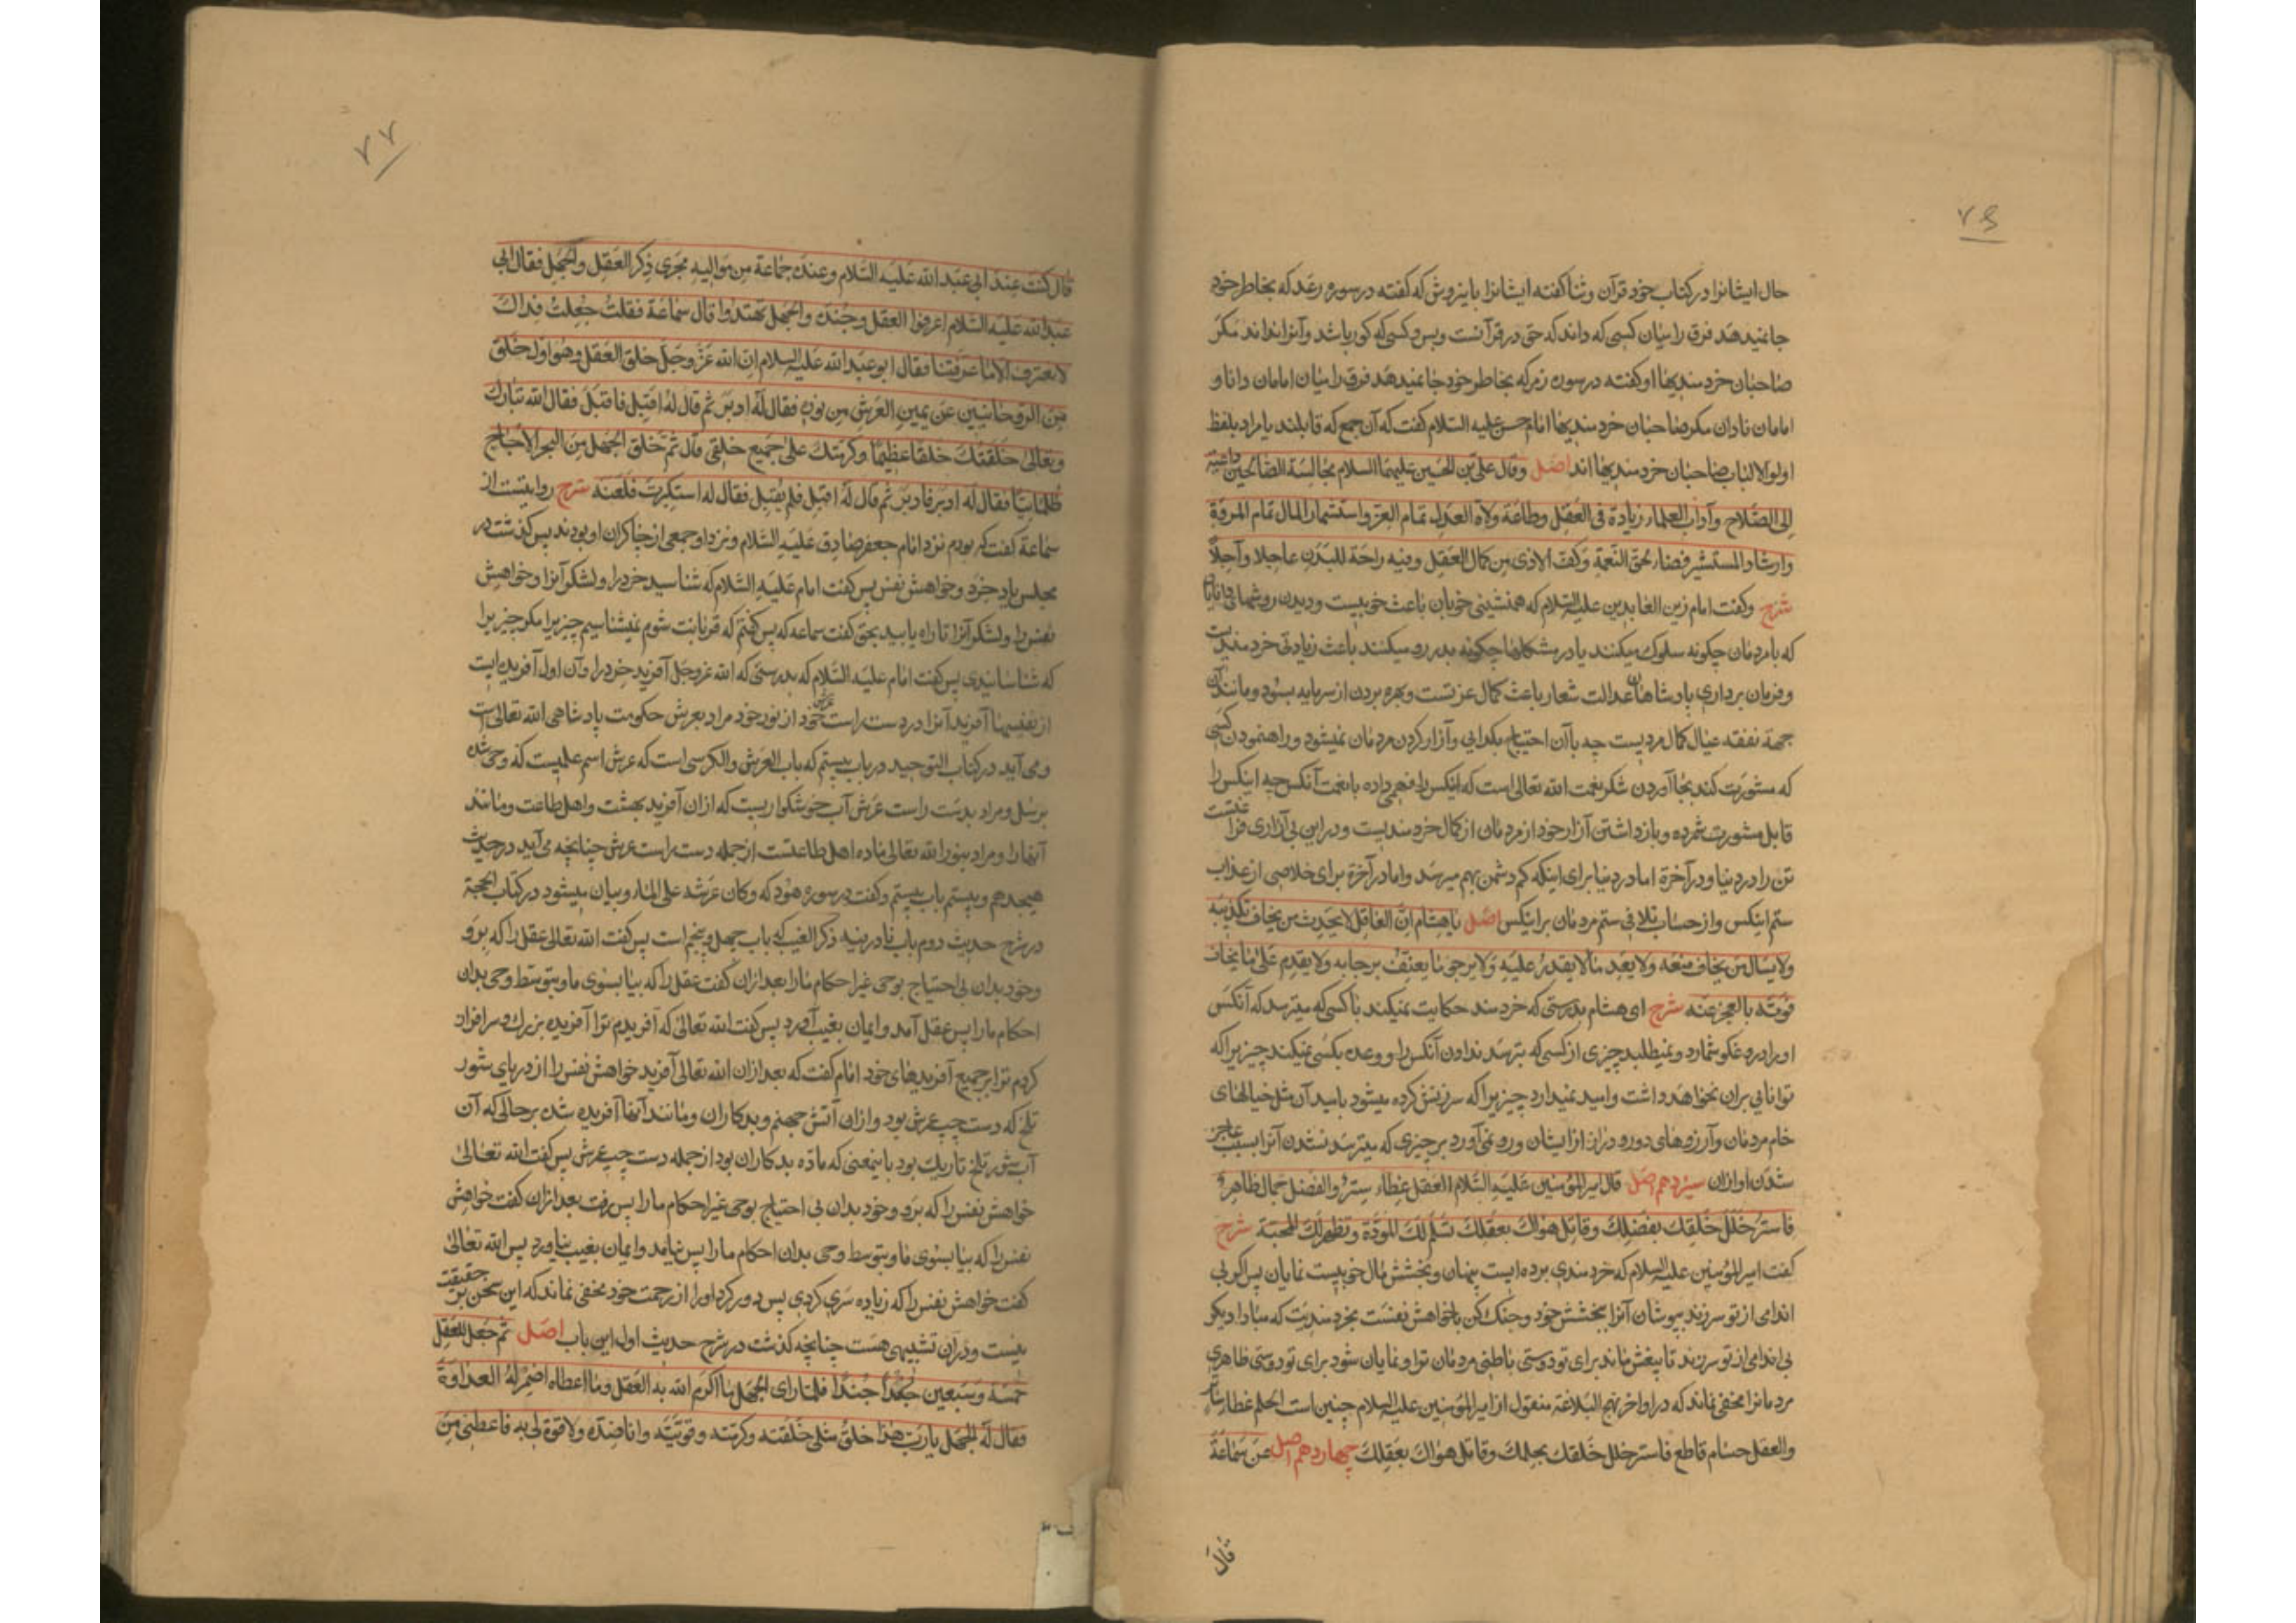 ۷۶
حال ایشانرا در کتاب خود قرآن و ثنا گفته ایشانرا باینروش که گفته در سوره رعد که بخاطر خود
جا نمیدهد فرق را میان کسی که داند که حق در قرآنست و بس و کسی که کور باشد و آنرا نداند مکر
صاحبان خردمندیها او گفته در سوره زمر که بخاطر خود جا نمیدهد فرق را میان امامان دانا و
امامان نادان مکر صاحبان خردمندیها امام حسن علیه السلام گفت که آن جمع که قابلند یا مراد بلفظ
اولوا الالباب صاحبان خردمندیها اند اصل وقال علی بن الحسین علیهما السلام مجالسة الصالحین داعیة
الی الصلاح وآداب العلماء زیادة فی العقل وطاعة ولاة العدل تمام العز واستثمار المال تمام المروة
وارشاد المستشیر قضاء لحق النعمة وکف الاذی من کمال العقل وفیه راحة للبدن عاجلا وآجلا
شرح وکفت امام زین العابدین علیه السلام که همنشینی خوبان باعث خوبیست ودیدن روشهای دانایان
که با مردمان چکونه سلوک میکنند یا در مشکلها چکونه بدر رو میکنند باعث زیادتی خردمندیست
و فرمان برداری پادشاهان عدالت شعار باعث کمال عزتست و بهره بردن از سرمایه بسود و مانند آن
جهة نفقه عیال کمال مردیست چه باآن احتیاج بکدایی و آزار کردن مردمان نمیشود و راهنمودن کسی
که مشورت کند بجا آوردن شکر نعمت الله تعالی است که اینکس را فهمی داده یا نعمت آنکس چه اینکس را
قابل مشورت شمرده و باز داشتن آزار خود از مردمان از کمال خردمندیست و در این بی آزاری فراغتست
تن را در دنیا و در آخرة اما در دنیا برای اینکه کم دشمن بهم میرسد و اما در آخرة برای خلاصی از عذاب
ستم اینکس و از حساب تلافی ستم مردمان بر اینکس اصل یا هشام ان العاقل لا یحدث من یخاف تکذیبه
ولا یسأل من یخاف منعه ولا یعد ما لا یقدر علیه ولا یرجو ما یعنف برجائه ولا یقدم علی ما یخاف
فوته بالعجز عنه شرح ای هشام بدرستی که خردمند حکایت نمیکند باکسی که میترسد که آنکس
او را دروغکو شمارد و نمیطلبد چیزی از کسی که بترسد ندادن آنکس را و وعده بکسی نمیکند چیزیرا که
توانایی بران نخواهد داشت و امید نمیدارد چیزیرا که سرزنش کرده میشود بامید آن مثل خیالهای
خام مردمان و آرزوهای دور و دراز از ایشان و رو نمی آورد بر چیزی که میترسد نشدن آنرا بسبب عاجز
شدن او ازان سیزدهم اصل قال امیر المؤمنین علیه السلام العقل غطاء ستیر والفضل جمال ظاهر
فاستر خلل خلقک بفضلک وقاتل هواک بعقلک تسلم لک المودة وتظهر لک المحبة شرح
کفت امیر المؤمنین علیه السلام که خردمندی پرده ایست پنهان و بخشش مال خوبیست نمایان پس اکر بی
اندامی از تو سر زند بپوشان آنرا ببخشش خود و جنک کن باخواهش نفست بخردمندیت که مبادا دیکر
بی اندامی از تو سر زند تا بیغش ماند برای تو دوستی باطنی مردمان تو را و نمایان شود برای تو دوستی ظاهری
مردمانرا مخفی نماند که در اواخر نهج البلاغة منقول از امیر المؤمنین علیه السلام چنین است الحلم غطاء ساتر
والعقل حسام قاطع فاستر خلل خلقک بحلمک وقاتل هواک بعقلک چهاردهم اصل عن سماعة
قال
۷۷
قال کنت عند ابی عبد الله علیه السلام وعنده جماعة من موالیه فجری ذکر العقل والجهل فقال ابی
عبد الله علیه السلام اعرفوا العقل وجنده والجهل تهتدوا قال سماعة فقلت جعلت فداک
لا نعرف الا ما عرفتنا فقال ابو عبد الله علیه السلام ان الله عز وجل خلق العقل وهو اول خلق
من الروحانیین عن یمین العرش من نوره فقال له ادبر ثم قال له اقبل فاقبل فقال الله تبارک
وتعالی خلقتک خلقا عظیما وکرمتک علی جمیع خلقی قال ثم خلق الجهل من البحر الاجاج
ظلمانیا فقال له ادبر فادبر ثم قال له اقبل فلم یقبل فقال له استکبرت فلعنه شرح روایتست از
سماعة کفت که بودم نزد امام جعفر صادق علیه السلام و نزد او جمعی از چاکران او بودند پس گذشت در
مجلس یاد خرد و خواهش نفس پس کفت امام علیه السلام که شناسید خرد را و لشکر آنرا و خواهش
نفس را و لشکر آنرا تا راه یابید بحق کفت سماعه که پس کفتم که قربانت شوم نمیشناسیم چیزیرا مکر چیزیرا
که شناسانیدی پس کفت امام علیه السلام که بدرستی که الله عز وجل آفرید خرد را و آن اول آفریده ایست
از نفیسها آفرید آنرا در دست راست عرش خود از نور خود مراد بعرش حکومت پادشاهی الله تعالی است
و می آید در کتاب التوحید در باب بیستم که باب العرش والکرسی است که عرش اسم علمیست که وحی شده
برسل و مراد بدست راست عرش آب خوشکواریست که ازان آفرید بهشت و اهل طاعت و مانند
آنها را و مراد بنور الله تعالی ماده اهل طاعتست از جمله دست راست عرش چنانچه می آید در حدیث
هیجدهم و بیستم باب بیستم و کفت در سوره هود که وکان عرشه علی الماء و بیان میشود در کتاب الحجة
در شرح حدیث دوم باب نادر فیه ذکر الغیب که باب چهل و پنجم است پس کفت الله تعالی عقل را که برو
وخود بدان بی احتیاج بوحی غیر احکام ما را بعد ازان کفت عقل را که بیا بسوی ما و بتوسط وحی بدان
احکام ما را پس عقل آمد و ایمان بغیب آورد پس کفت الله تعالی که آفریدم تو را آفریده بزرک و سرافراز
کردم تو را بر جمیع آفریدهای خود امام کفت که بعد ازان الله تعالی آفرید خواهش نفس را از دریای شور
تلخ که دست چپ عرش بود و ازان آتش جهنم و بدکاران و مانند آنها آفریده شده بر حالی که آن
آب شور تلخ تاریک بود باینمعنی که ماده بدکاران بود از جمله دست چپ عرش پس کفت الله تعالی
خواهش نفس را که برو و خود بدان بی احتیاج بوحی غیر احکام ما را پس رفت بعد ازان کفت خواهش
نفس را که بیا بسوی ما و بتوسط وحی بدان احکام ما را پس نیامد و ایمان بغیب نیاورد پس الله تعالی
کفت خواهش نفس را که زیاده سری کردی پس دور کرد او را از رحمت خود مخفی نماند که این سخن بر حقیقت
نیست و دران تشبیهی هست چنانچه کذشت در شرح حدیث اول این باب اصل ثم جعل للعقل
خمسة وسبعین جندا فلما رای الجهل ما اکرم الله به العقل وما اعطاه اضمر له العداوة
فقال له الجهل یا رب هذا خلق مثلی خلقته وکرمته وقویته وانا ضده ولا قوة لی به فاعطنی من